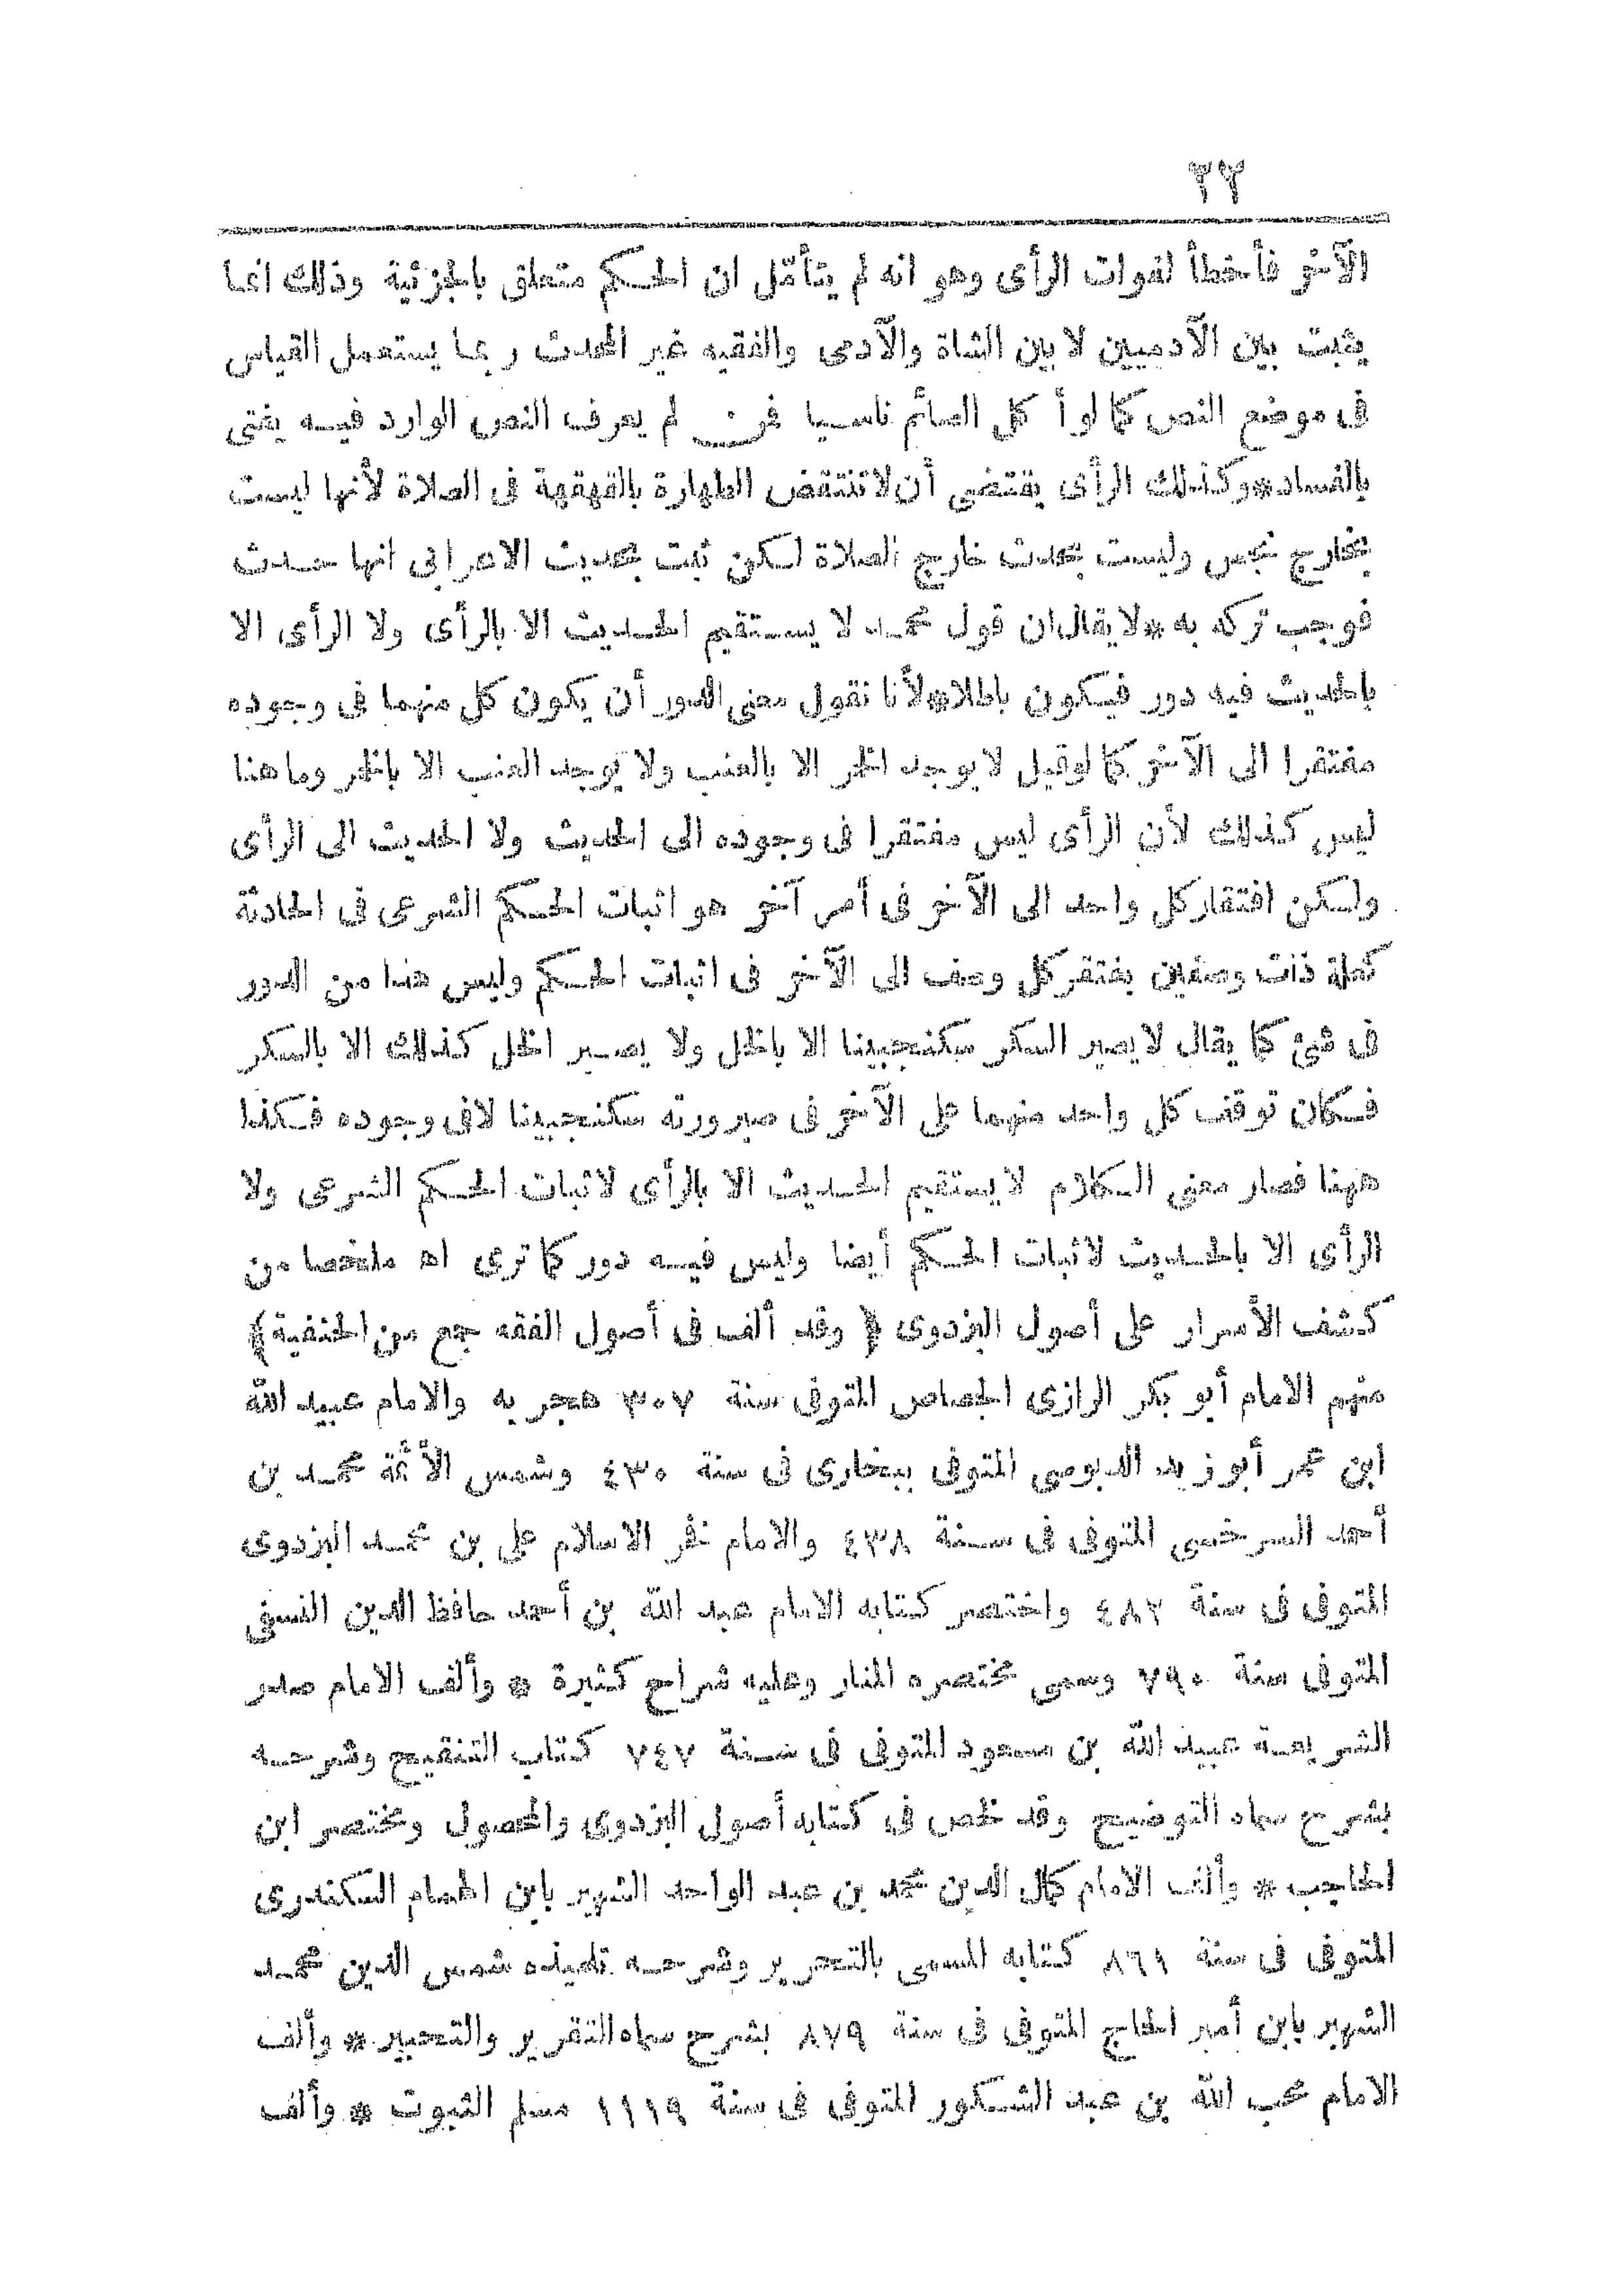 ٣٣
الآخر فأخطأ لفوات الرأى وهو انه لم يتأمّل ان الحكم متعلق بالجزئية وذلك انما
يثبت بين الآدميين لا بين الشاة والآدمى والفقيه غير المحدث ربما يستعمل القياس
فى موضع النص كما لو أكل الصائم ناسيا فمن لم يعرف النص الوارد فيه يفتى
بالفساد*وكذلك الرأى يقتضى أن لاتنتقض الطهارة بالقهقهة فى الصلاة لأنها ليست
بخارج نجس وليست بحدث خارج الصلاة لكن ثبت بحديث الاعرابى انها حدث
فوجب تركه به *لا يقال ان قول محمد لا يستقيم الحديث الا بالرأى ولا الرأى الا
بالحديث فيه دور فيكون باطلا*لأنا نقول معنى الدور أن يكون كل منهما فى وجوده
مفتقرا الى الآخر كما لو قيل لا يوجد الخمر الا بالعنب ولا يوجد العنب الا بالخمر وما هنا
ليس كذلك لأن الرأى ليس مفتقرا فى وجوده الى الحديث ولا الحديث الى الرأى
ولكن افتقار كل واحد الى الآخر فى أمر آخر هو اثبات الحكم الشرعى فى الحادثة
كعلة ذات وصفين يفتقر كل وصف الى الآخر فى اثبات الحكم وليس هذا من الدور
فى شئ كما يقال لا يصير السكر سكنجبينا الا بالخل ولا يصير الخل كذلك الا بالسكر
فكان توقف كل واحد منهما على الآخر فى صيرورته سكنجبينا لافى وجوده فكذا
ههنا فصار معنى الكلام لا يستقيم الحديث الا بالرأى لاثبات الحكم الشرعى ولا
الرأى الا بالحديث لاثبات الحكم أيضا وليس فيه دور كما ترى اه ملخصا من
كشف الأسرار على أصول البزدوى ﴿ وقد ألف فى أصول الفقه جمع من الحنفية﴾
منهم الامام أبو بكر الرازى الجصاص المتوفى سنة ٣٠٧ هجريه والامام عبيد الله
ابن عمر أبو زيد الدبوسى المتوفى ببخارى فى سنة ٤٣٠ وشمس الأئمة محمد بن
أحمد السرخسى المتوفى فى سنة ٤٣٨ والامام فخر الاسلام على بن محمد البزدوى
المتوفى فى سنة ٤٨٢ واختصر كتابه الامام عبد الله بن أحمد حافظ الدين النسفى
المتوفى سنة ٧٩٠ وسمى مختصره المنار وعليه شراح كثيرة * وألف الامام صدر
الشريعة عبيد الله بن مسعود المتوفى فى سنة ٧٤٧ كتاب التنقيح وشرحه
بشرح سماه التوضيح وقد لخص فى كتابه أصول البزدوى والمحصول ومختصر ابن
الحاجب * وألف الامام كمال الدين محمد بن عبد الواحد الشهير بابن الهمام السكندرى
المتوفى فى سنة ٨٦١ كتابه المسمى بالتحرير وشرحه تلميذه شمس الدين محمد
الشهير بابن أمير الحاج المتوفى فى سنة ٨٧٩ بشرح سماه التقرير والتحبير * وألف
الامام محب الله بن عبد الشكور المتوفى فى سنة ١١١٩ مسلم الثبوت * وألف